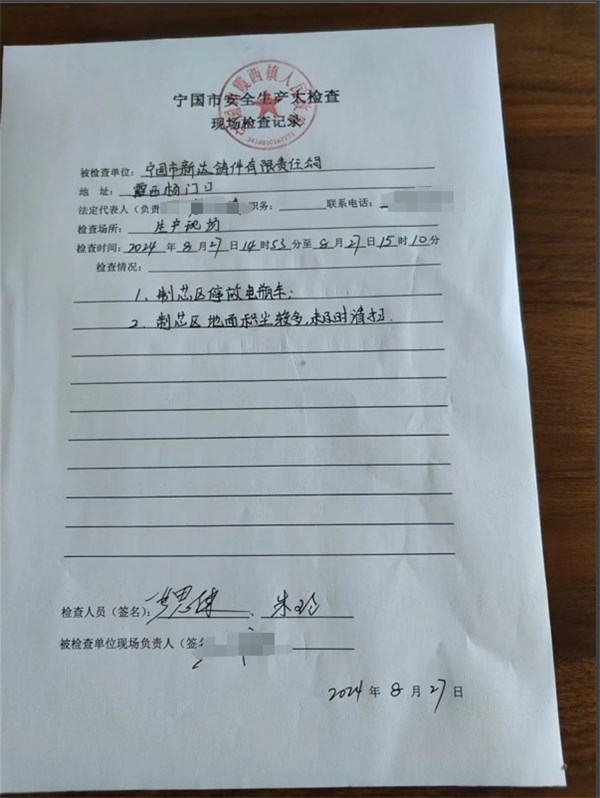 宁国市霞西镇人民政府
宁国市安全生产大检查
现场检查记录
被检查单位：宁国市新达铸件有限责任公司
地 址：霞西杨门口
法定代表人（负责 职务： 联系电话：
检查场所：生产现场
检查时间：2024 年 8 月 27 日 14 时 53 分至 8 月 27 日 15 时 10 分
检查情况：
1、制芯区停放电瓶车；
2、制芯区地面积尘较多，未及时清扫.
检查人员（签名）： 、朱玲
被检查单位现场负责人（签名
2024 年 8 月 27 日